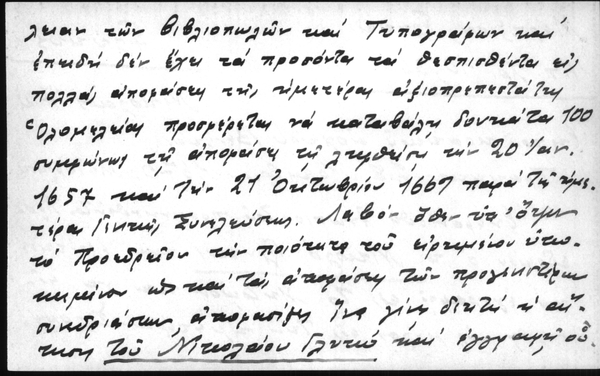 λειαν τῶν Βιβλιοπωλῶν καί Τυπογράφων καί
ἐπειδή δέν ἔχει τά προσόντα τά θεσπισθέντα εἰς
πολλάς ἀποφάσεις τῆς ἡμετέρας ἀξιοπρεπεστάτης
Ὁλομελείας προσφέρεται νά καταβάλῃ δουκάτα 100
συμφώνως τῇ ἀποφάσει τῇ ληφθείσῃ τήν 20 Ἰαν.
1657 καί τήν 21 Ὀκτωβρίου 1667 παρά τῆς ἡμε-
τέρας Γενικῆς Συνελεύσεως. Λαβόν ὅθεν ὑπ' ὄψιν
τό Προεδρεῖον τήν ποιότητα τοῦ εἰρημένου ὑπο-
κειμένου ὡς καί τάς ἀποφάσεις τῶν προγενεστέρων
συνεδριάσεων, ἀπεφάσισε ἵνα γίνῃ δεκτή ἡ αἴ-
τησις τοῦ Νικολάου Γλυκύ καί ἐγγραφῇ οὗ-